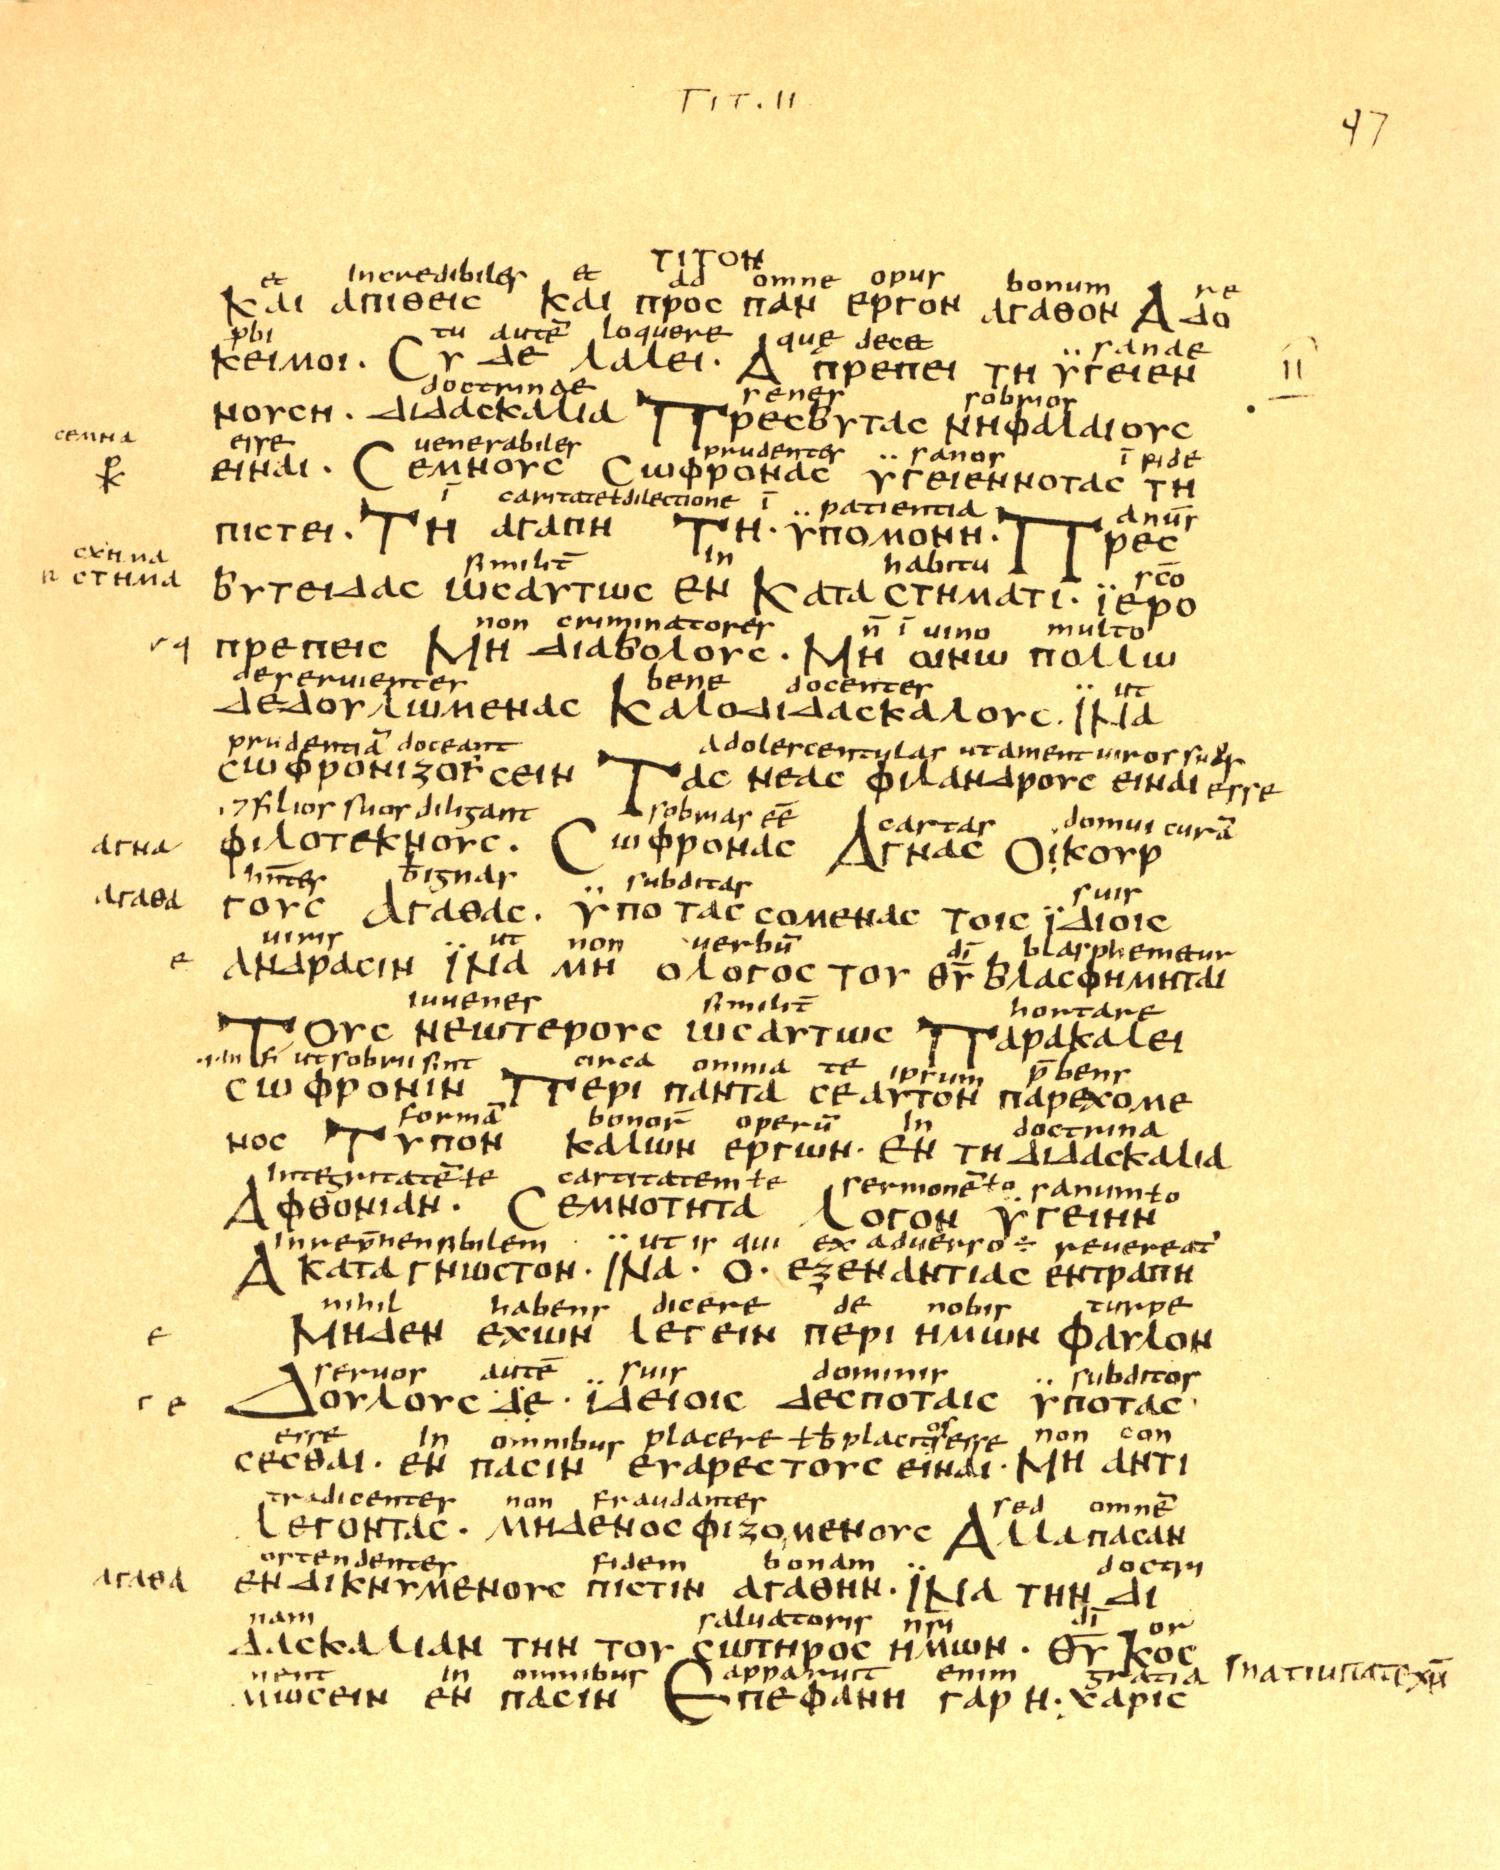 ΤΙΤ. ΙΙ
47
ΤΙΤΟΝ
et Incredibiles et ad omne opus bonum re
ΚΑΙ ΑΠΙΘΕΙC ΚΑΙ ΠΡΟC ΠΑΝ ΕΡΓΟΝ ΑΓΑΘΟΝ ΑΔΟ
pbi tu autē loquere quę decet sanae
ΚΕΙΜΟΙ. CΥ ΔΕ ΛΑΛΕΙ. Α ΠΡΕΠΕΙ ΤΗ ΫΓΕΙΕΝ
II
doctrinae senes sobrios
ΝΟΥCΗ. ΔΙΔΑCΚΑΛΙΑ ΠΡΕCΒΥΤΑC ΝΗΦΑΛΑΙΟΥC
CΕΜΝΑ
esse uenerabiles prudentes sanos ī fide
ΕΙΝΑΙ. CΕΜΝΟΥC CΩΦΡΟΝΑC ΫΓΕΙΕΝΝΟΤΑC ΤΗ
ī caritate ł dilectione ī patientia anūs
ΠΙCΤΕΙ. ΤΗ ΑΓΑΠΗ ΤΗ. ΫΠΟΜΟΝΗ. ΠΡΕC
CΧΗΜΑ
CΤΗΜΑ
similit̄ in habitu sc̄o
ΒΥΤΕΙΔΑC ΩCΑΥΤΩC ΕΝ ΚΑΤΑCΤΗΜΑΤΙ. ΪΕΡΟ
non criminatores n̄ ī uino multo
rq ΠΡΕΠΕΙC ΜΗ ΔΙΑΒΟΛΟΥC. ΜΗ ΟΙΝΩ ΠΟΛΛΩ
deseruientes bene docentes ut
ΔΕΔΟΥΛΩΜΕΝΑC ΚΑΛΟΔΙΔΑCΚΑΛΟΥC. ΪΝΑ
prudentiā doceant Adolescentulas ut ament uiros suos
CΩΦΡΟΝΙΖΟΥCΕΙΝ ΤΑC ΝΕΑC ΦΙΛΑΝΔΡΟΥC ΕΙΝΑΙ esse
filios suos diligant sobrias eē castas domui curā
ΑΓΝΑ ΦΙΛΟΤΕΚΝΟΥC. CΩΦΡΟΝΑC ΑΓΝΑC ΟΙΚΟΥΡ
b̄ignas subditas suis
ΑΓΑΘΑ ΓΟΥC ΑΓΑΘΑC. ΫΠΟΤΑCCΟΜΕΝΑC ΤΟΙC ΪΔΙΟΙC
uiris ut non uerbū dī blasphemetur
e ΑΝΔΡΑCΙΝ ΪΝΑ ΜΗ ΟΛΟΓΟC ΤΟΥ ΘΥ̅ ΒΛΑCΦΗΜΗΤΑΙ
iuuenes similit̄ hortare
ΤΟΥC ΝΕΩΤΕΡΟΥC ΩCΑΥΤΩC ΠΑΡΑΚΑΛΕΙ
ut sobrii sint circa omnia te ipsum p̄bens
CΩΦΡΟΝΙΝ ΠΕΡΙ ΠΑΝΤΑ CΕΑΥΤΟΝ ΠΑΡΕΧΟΜΕ
formā bonor̄ operū In doctrina
ΝΟC ΤΥΠΟΝ ΚΑΛΩΝ ΕΡΓΩΝ. ΕΝ ΤΗ ΔΙΔΑCΚΑΛΙΑ
Integritatē ł te castitatem ł te sermonē ł o sanum ł o
ΑΦΘΟΝΙΑΝ. CΕΜΝΟΤΗΤΑ ΛΟΓΟΝ ΫΓΕΙΗΝ
Inrep̄hensibilem ut is qui ex aduerso ÷ reuereat̄
ΑΚΑΤΑΓΝΩCΤΟΝ. ΪΝΑ. Ο. ΕΞΕΝΑΝΤΙΑC ΕΝΤΡΑΠΗ
nihil habens dicere de nobis turpe
e ΜΗΔΕΝ ΕΧΩΝ ΛΕΓΕΙΝ ΠΕΡΙ ΗΜΩΝ ΦΑΥΛΟΝ
seruos autē suis dominis subditos
r e ΔΟΥΛΟΥC ΔΕ. ΪΔΕΙΟΙC ΔΕCΠΟΤΑΙC ΫΠΟΤΑC
esse In omnibus placere ł b̄placitos esse non con
CΕCΘΑΙ. ΕΝ ΠΑCΙΝ ΕΥΑΡΕCΤΟΥC ΕΙΝΑΙ. ΜΗ ΑΝΤΙ
tradicentes non fraudantes sed omnē
ΛΕΓΟΝΤΑC. ΜΗΔΕΝΟCΦΙΖΟΜΕΝΟΥC ΑΛΛΑ ΠΑCΑΝ
ostendentes fidem bonam doctri
ΑΓΑΘΑ ΕΝΔΙΚΝΥΜΕΝΟΥC ΠΙCΤΙΝ ΑΓΑΘΗΝ. ΪΝΑ ΤΗΝ ΔΙ
nam saluatoris nr̄i dī or
ΔΑCΚΑΛΙΑΝ ΤΗΝ ΤΟΥ CΩΤΗΡΟC ΗΜΩΝ. ΘΥ̅ ΚΟC
nent in omnibus apparuit enim gratia
ΜΩCΕΙΝ ΕΝ ΠΑCΙΝ ΕΠΕΦΑΝΗ ΓΑΡ Η. ΧΑΡΙC